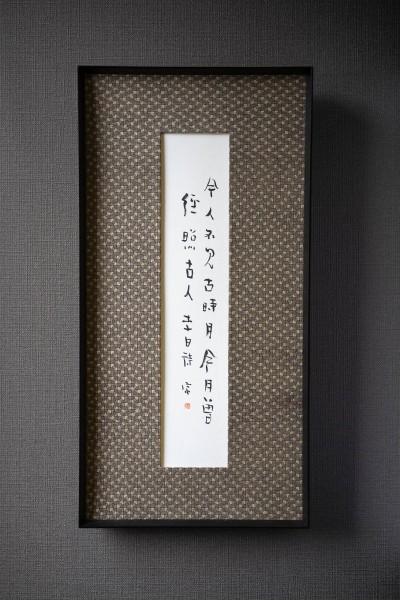 今人不見古時月今月曾
經照古人李白詩